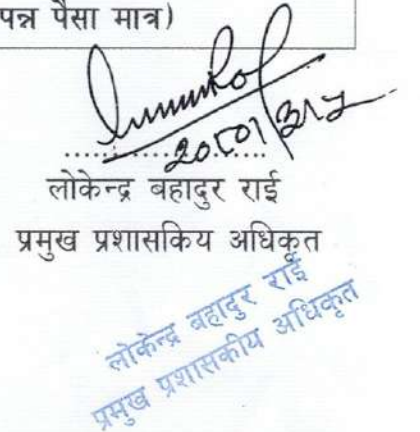 पन्न पैसा मात्र)
लोकेन्द्र बहादुर राई
प्रमुख प्रशासकिय अधिकृत
लोकेन्द्र बहादुर राई
प्रमुख प्रशासकीय अधिकृत